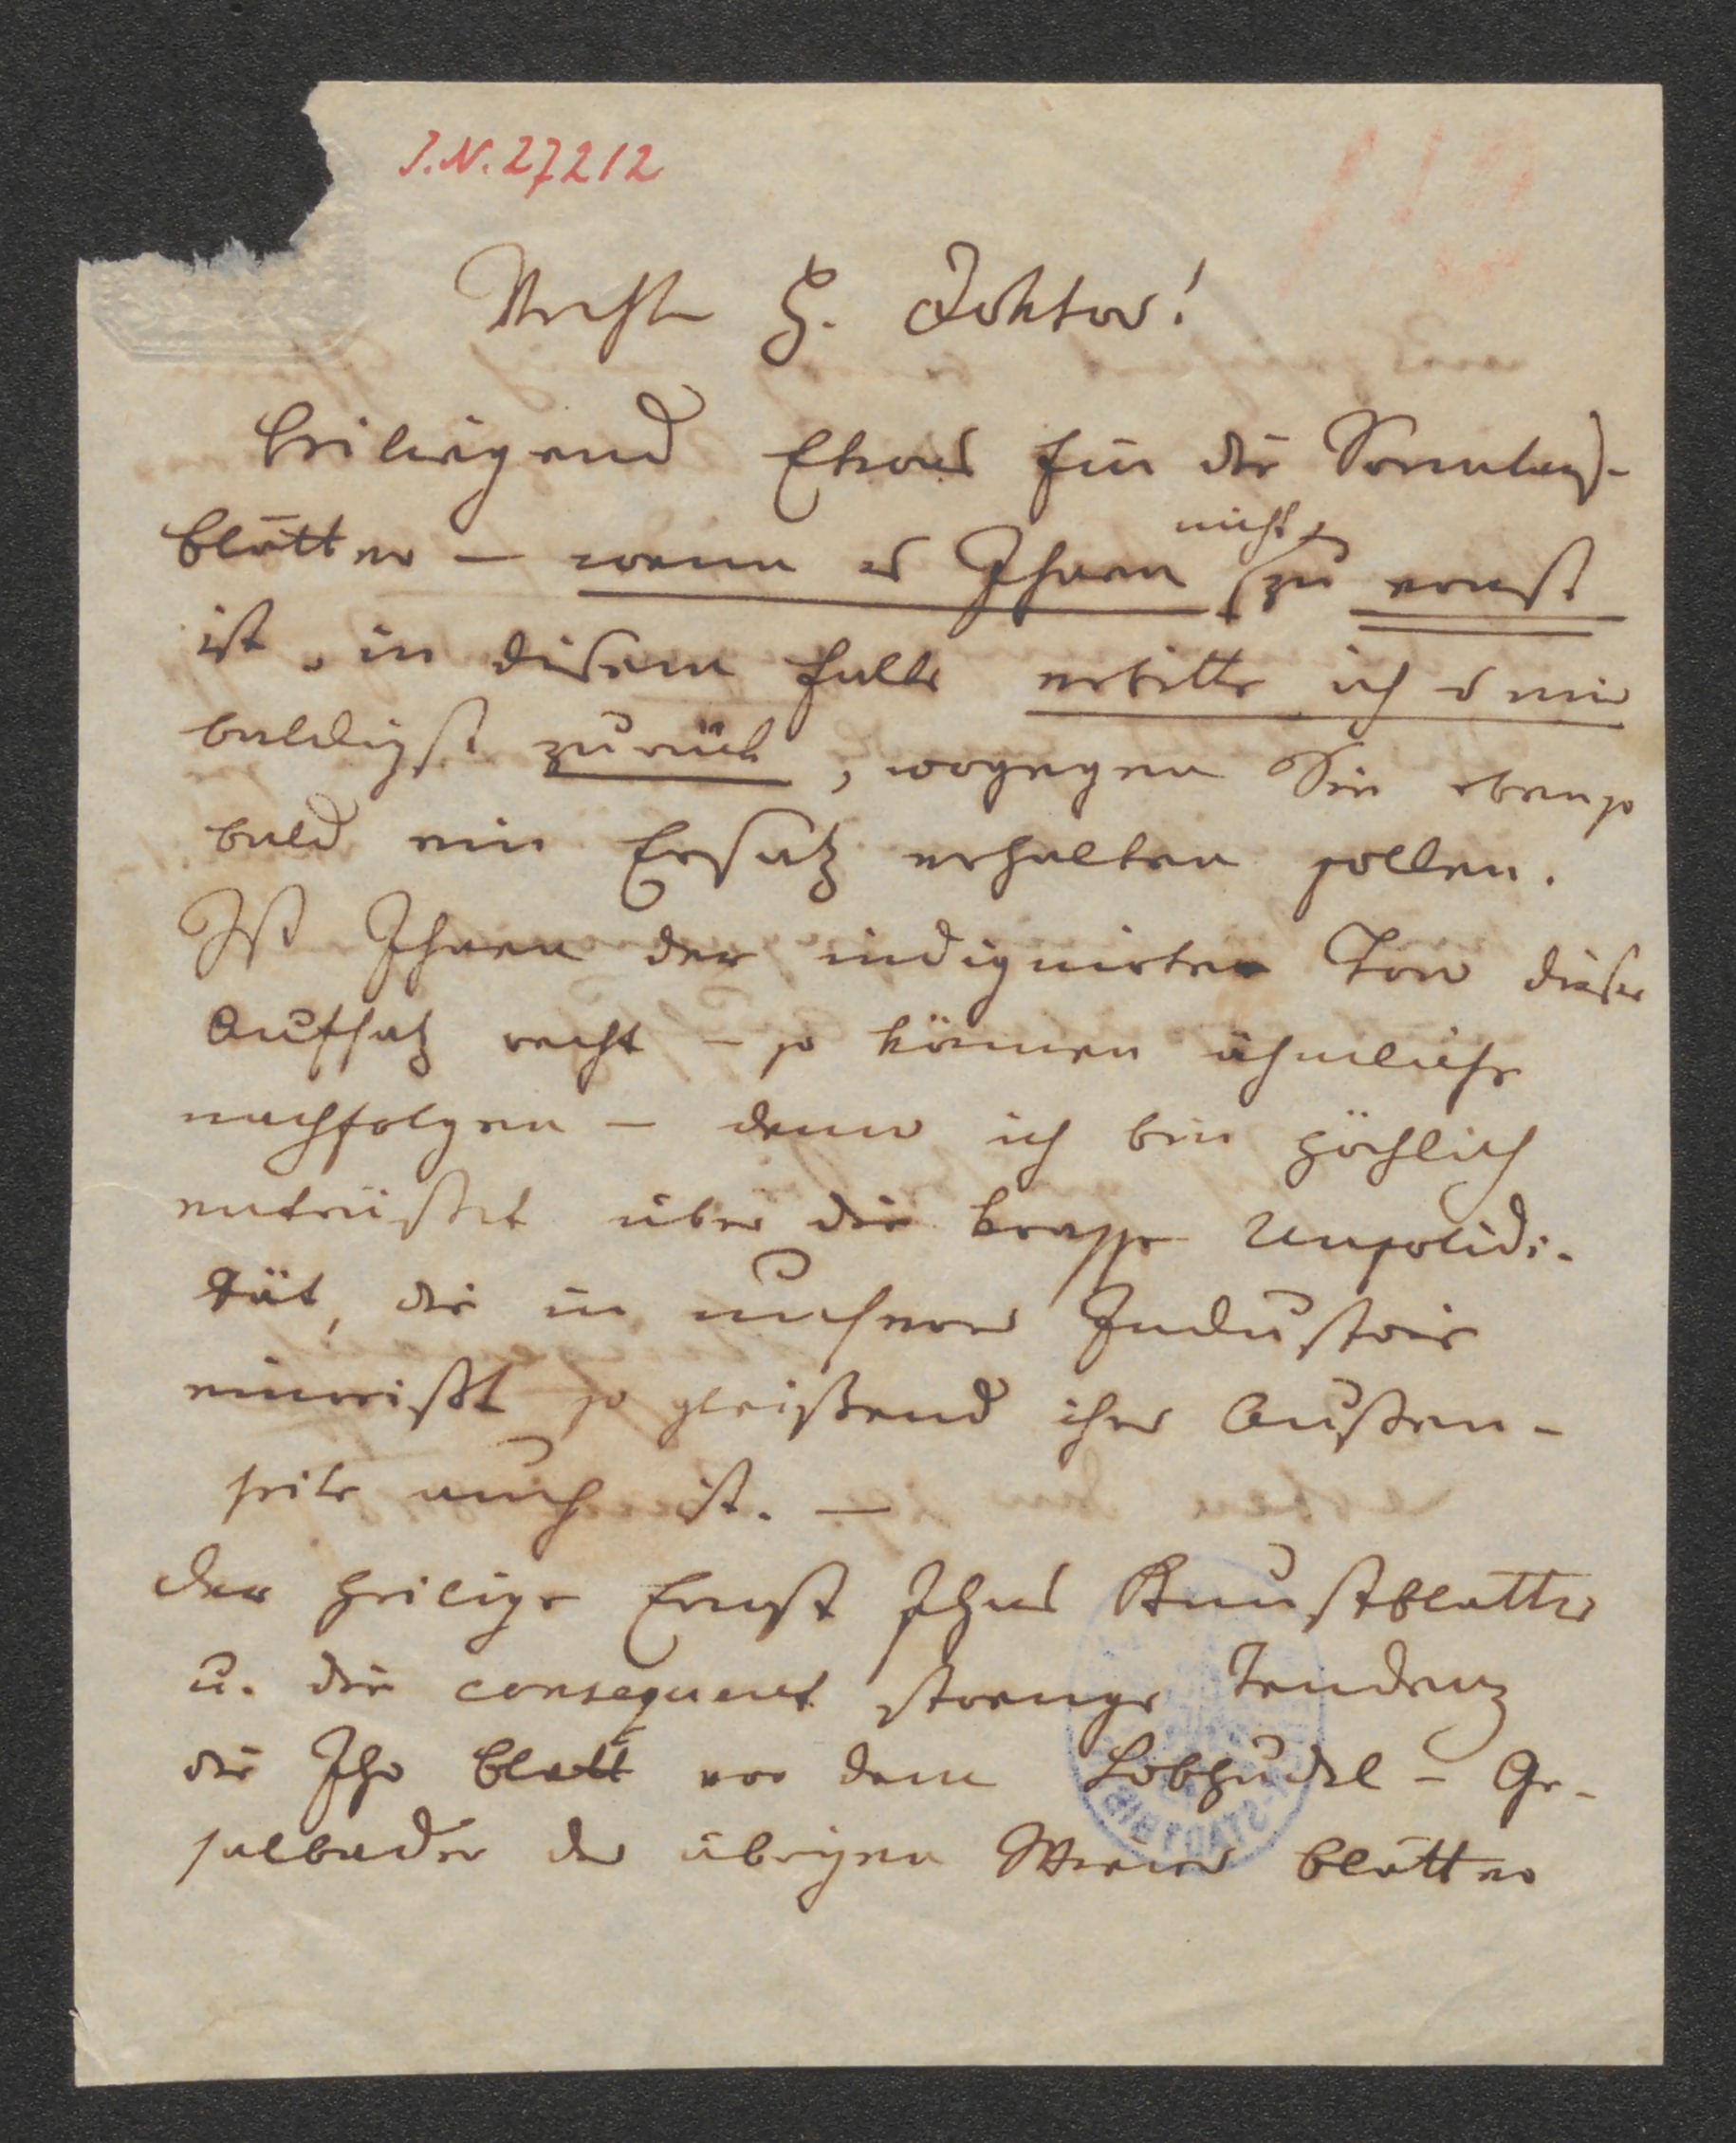 I.N. 27212
Verehrter H. Doktor!
beiliegend Etwas für die Sonntags-
blätter – wenn es Ihnen nicht zu ernst
ist, in diesem Falle erbitte ich es mir
baldigst zurück, wogegen Sie ebenso
bald ein Ersatz erhalten sollen.
Ist Ihnen der indignirte Ton dieser
Aufsatz recht – so können ähnliche
nachfolgen – denn ich bin höchlich
entrüstet über die krasse Unsolidi-
tät, die in unserer Industrie
einreißt so gleißend ihre Außen-
seite auch ist. –
Der heilige Ernst Ihres Kunstblattes
u. die consequent strenge Tendenz
die Ihr Blatt vor dem Lobhudel- Ge-
salbader der übrigen Wiener Blätter